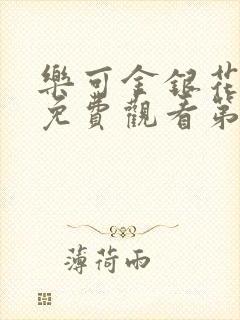 樂可金銀花
免費觀看第
薄荷雨